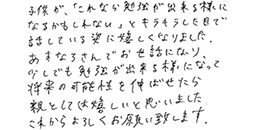 子供が、「これなら勉強が出来る様に
なるかもしれない」とキラキラした目で
話している姿に嬉しくなりました。
あすなろさんでお世話になり、
少しでも勉強が出来る様になって
将来の可能性を伸ばせたら
親としては嬉しいと思いました
これからよろしくお願い致します。